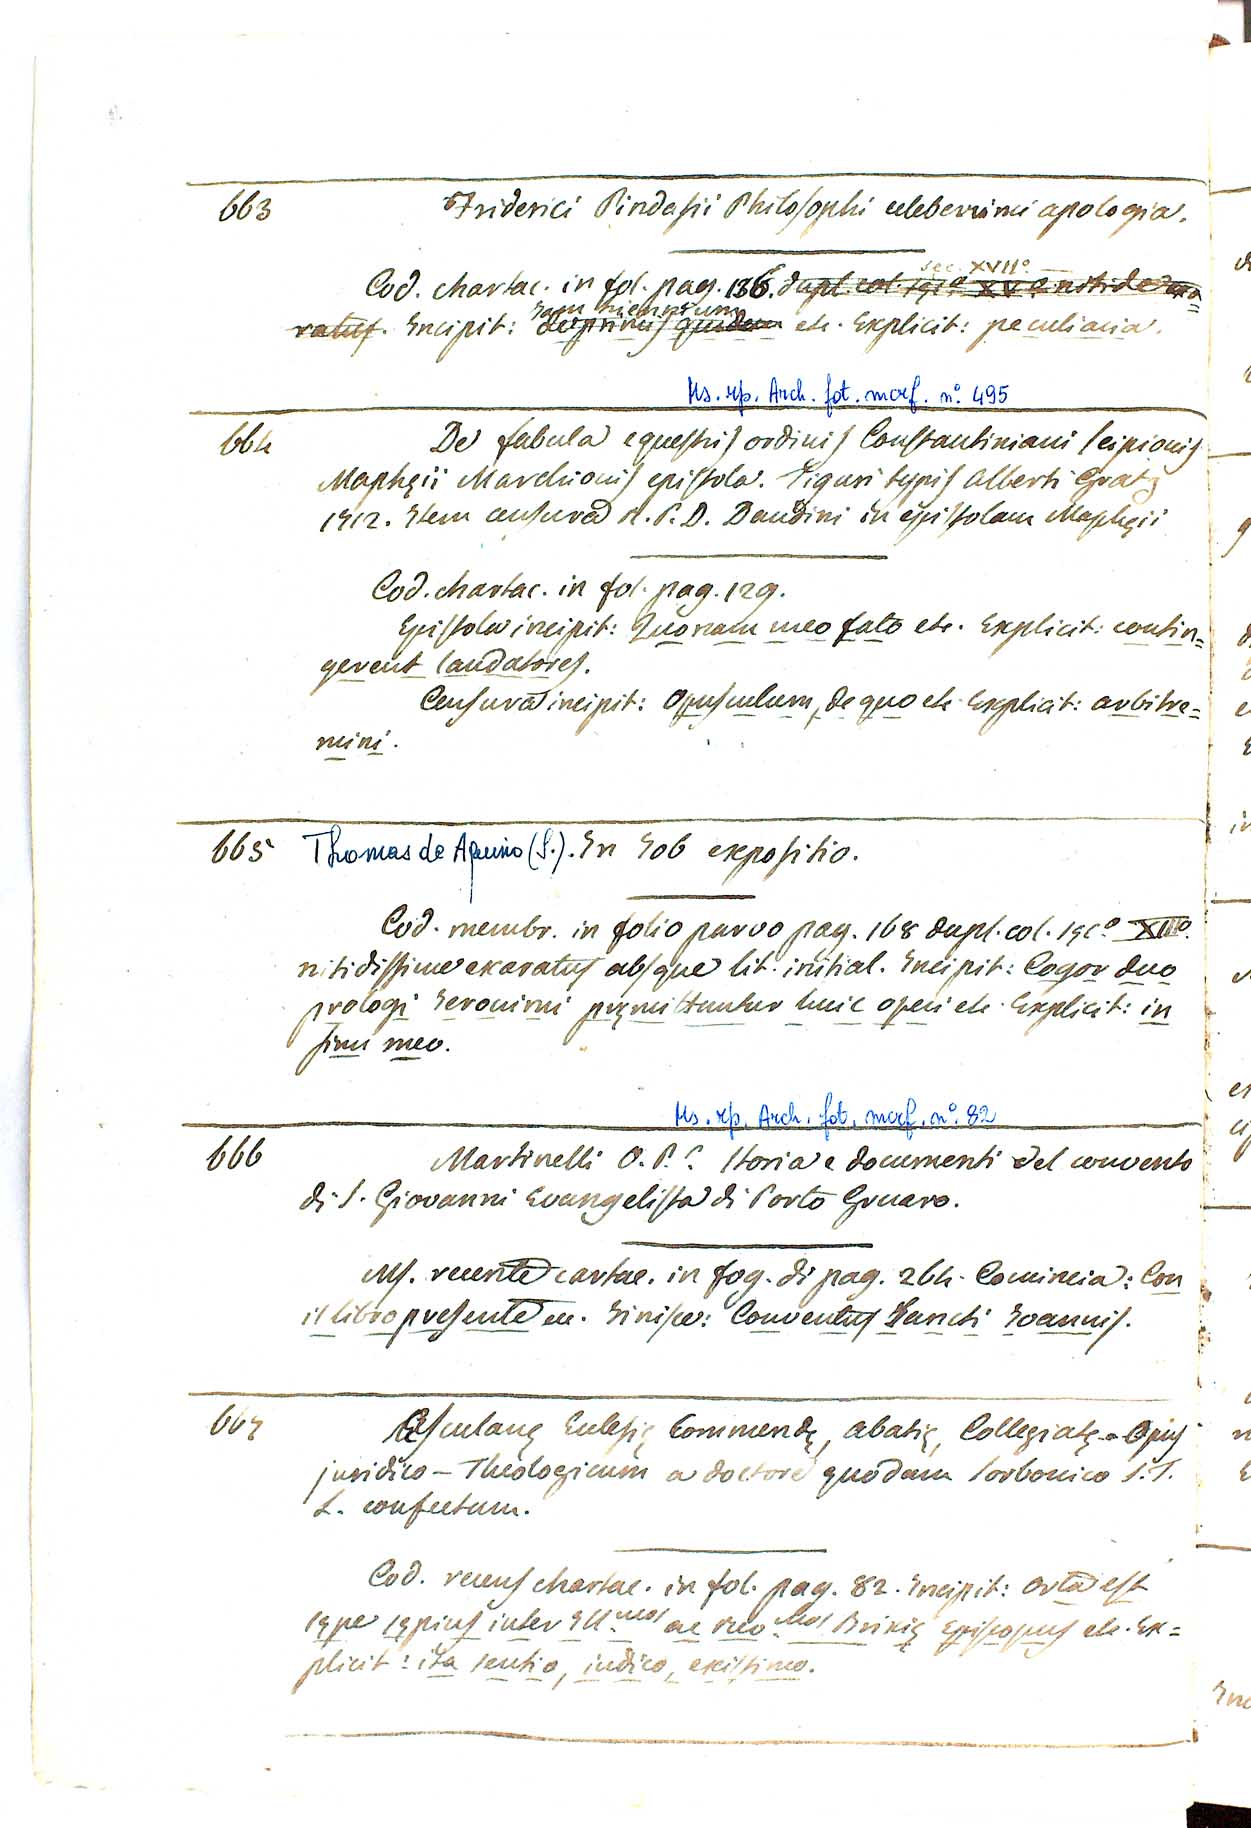 663 Friderici Pindasii Philosophi celeberrimi apologia.
sec. XVIIº
Cod. chartac. in fol. pag. 136. dupl. col. sęcº XVº nitide exa
ratus. Incipit: etc. Explicit: peculiaria.
Ms. rip. Arch. fot. morf. nº. 495
664 De fabula equestris ordinis Constantiniani Scipionis
Maphęii Marchionis epistola. Tiguri typis Alberti Gratz
1712. Item censura R. P. D. Bandini in epistolam Maphęii
Cod. chartac. in fol. pag. 129.
Epistola incipit: Quonam meo fato etc. Explicit: contin=
gerent laudatores.
Censura incipit: Opusculum, de quo etc. Explicit: arbitre=
mini.
665 Thomas de Aquino (S.). In Iob expositio.
Cod. membr. in folio parvo pag. 168 dupl. col. sęcº XIIIº.
nitidissime exaratus absque lit. initial. Incipit: Cogor duo
prologi Ieronimi pręmittuntur huic operi etc. Explicit: in
sinu meo.
Ms. rip. Arch. fot. morf. nº. 82
666 Martinelli O. P. S. Storia e documenti del convento
di S. Giovanni Evangelista di Porto Gruaro.
Ms. recente cartac. in fog. di pag. 264. Comincia: Con
il libro presente ec. Finisce: Conventus Sancti Ioannis.
667 Esculanę Eclesię Commendę, abatię, Collegiatę. Opus
juridico - Theologicum a doctore quodam Sorbonico S. T.
L. confectum.
Cod. recens chartac. in fol. pag. 82. Incipit: Orta est
sępe sępius inter Ill.mos ac Reo.mos Brixię Episcopus etc. Ex=
plicit: ita sentio, iudico, existimo.